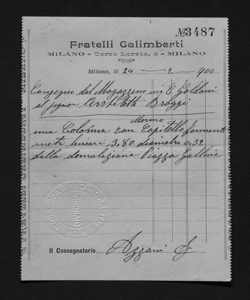 № 3487
Fratelli Galimberti
MILANO - Corso Loreto, 8 - MILANO
Milano, il 24 - 1 - 900
Consegnato dal Magazzeno in E. Goldoni
al signor Architetto Broggi
Marmo
una Colonna con Capitello
metri lineari 3.80 diametro 0.32
della demolizione Piazza Galline
Il Consegnatario Azzani G